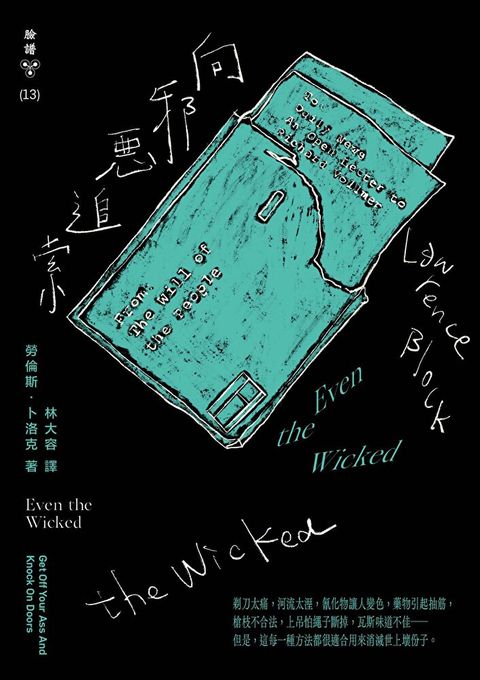 臉譜
(13)
向邪惡追索
To
Daily News
An Open Letter to
Richard Vollmer
From
The Will of
the People
Lawrence
Block
Even
the
Wicked
勞倫斯．卜洛克 著
林大容 譯
Even the
Wicked
the Wicked
Get Off Your Ass And
Knock On Doors
剃刀太痛，河流太溼，氰化物讓人變色，藥物引起抽筋，
槍枝不合法，上吊怕繩子斷掉，瓦斯味道不佳——
但是，這每一種方法都很適合用來消滅世上壞份子。